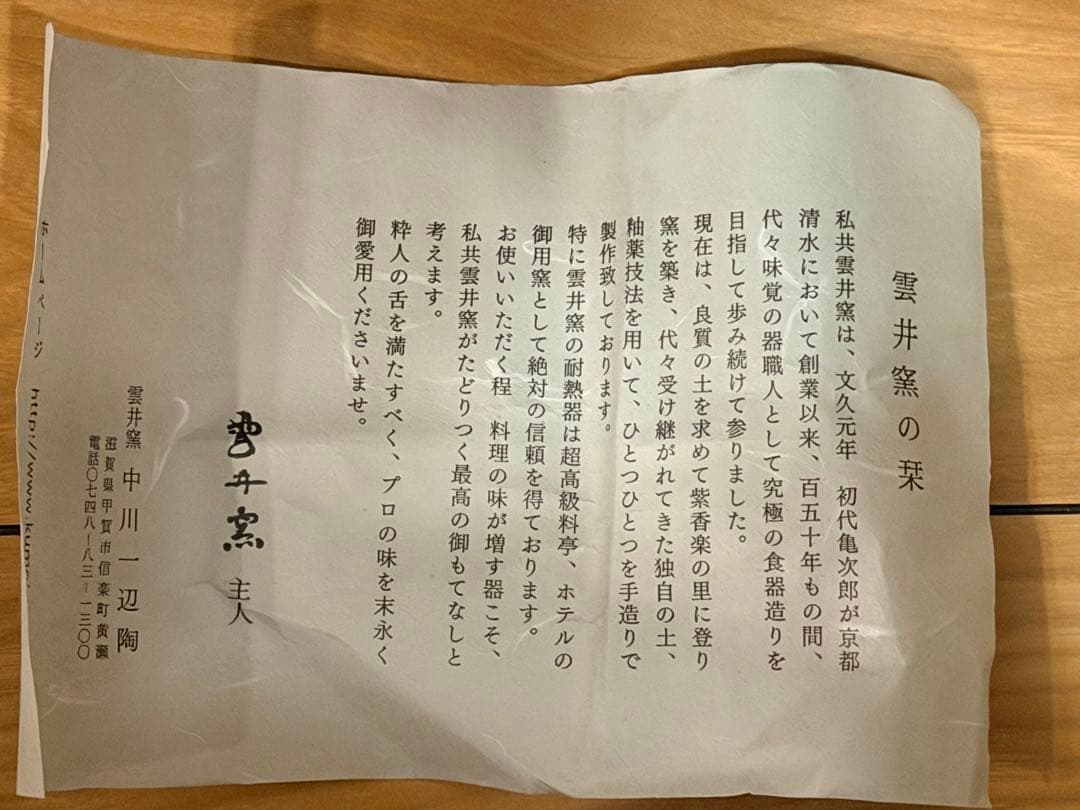 雲井窯の栞
私共雲井窯は、文久元年 初代亀次郎が京都
清水において創業以来、百五十年もの間、
代々味覚の器職人として究極の食器造りを
目指して歩み続けて参りました。
現在は、良質の土を求めて紫香楽の里に登り
窯を築き、代々受け継がれてきた独自の土、
釉薬技法を用いて、ひとつひとつを手造りで
製作致しております。
特に雲井窯の耐熱器は超高級料亭、ホテルの
御用窯として絶対の信頼を得ております。
お使いいただく程 料理の味が増す器こそ、
私共雲井窯がたどりつく最高の御もてなしと
考えます。
粋人の舌を満たすべく、プロの味を末永く
御愛用くださいませ。
雲井窯 主人
雲井窯 中川一辺陶
滋賀県甲賀市信楽町黄瀬
電話〇七四八ー八三ー一三〇〇
ホームページ http://www.kumo